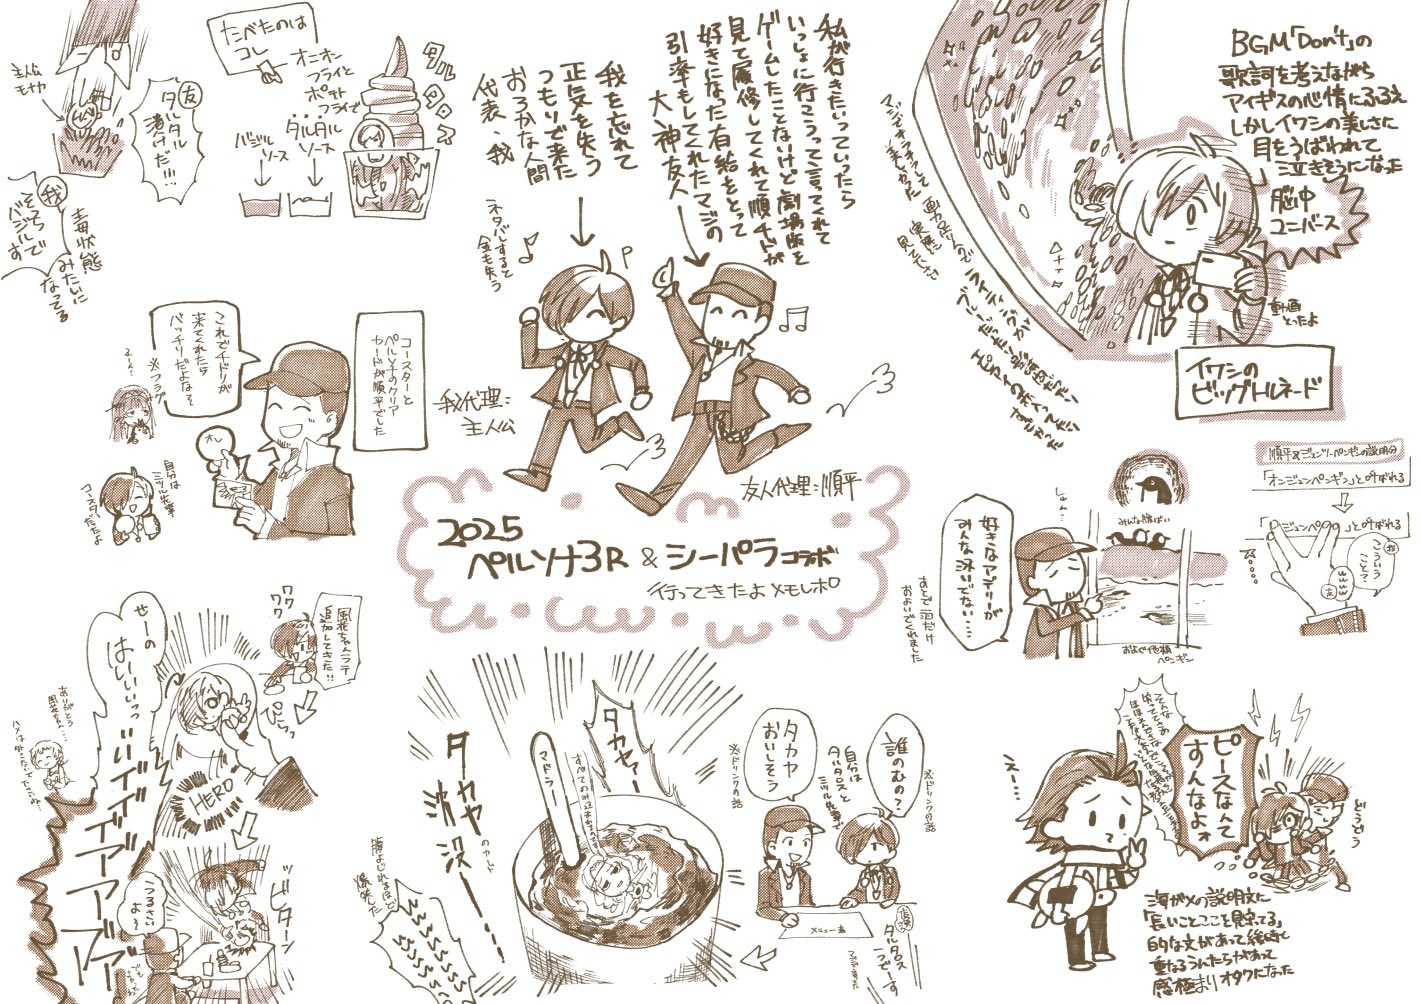 2025
ペルソナ3R & シーパラコラボ
行ってきたよメモレポ
私が行きたいっていったら
いっしょに行こうって言ってくれて
ゲームしたことないけど劇場版を
見て履修してくれて順チドが
好きになった有給をとって
引率もしてくれたマジの
大神友人
我を忘れて
正気を失う
つもりで来た
おろかな人間
代表、我
ネタバレすると
金も失う
我代理:
主人公
友人代理:順平
たべたのは
コレ
オニオン
フライと
ポテト
フライで
タルタル
ソース
バジル
ソース
タルタル
主人公
モナカ
友
タルタル
漬けだ!!!…
我
そっち
バジルで
す
毒状態
みたいに
なってる
コースターと
ペルソナのクリア
カードが順平でした
これでチドリが
来てくれたら
バッチリだよな〜
※フラグ
ふーん
オレ
自分は
ミツル先輩
コースター
だたよ
BGM「Don't」の
歌詞を考えながら
アイギスの心情にふるえ
しかしイワシの美しさに
目をうばわれて
泣きそうになった
脳中
ユニバース
動画
とったよ
イワシの
ビッグトルネード
マジでキラキラして
美しかった
順平×ジェンツーペンギンの説明分
「オンジュンペンギン」と呼ばれる
我
こういう
こと?
友
wwww
みんな腹ばい
しゅん…
好きなアデリーが
みんな泳いでない…
あとで一羽だけ
およいでくれました
およぐ他種
ペンギン
ワク
ワク
ワク
風花ちゃんラテ
追加してきた!!
ぴらっ
せーの
はいいいっっ
HERO
ありがとう
風花ちゃん…
ッビターン
うるさい
よ〜
タカヤァー
マドラー
タカヤ
沈没ーー
腹よじれるほど
爆笑した
wwwwssss
タカヤ
おいしそう
※ドリンクの話
誰のむの?
※ドリンクの話
自分は
タルタロスと
ミツル先輩で
メニュー表
タルタロス
一つでーす
えー…
ピースなんて
すんなよォ
どうどう
海ガメの説明文に
「長いことここを見守ってる」
的な文があって綾時と
重ねるうんたらがあって
感極まりオタクになった